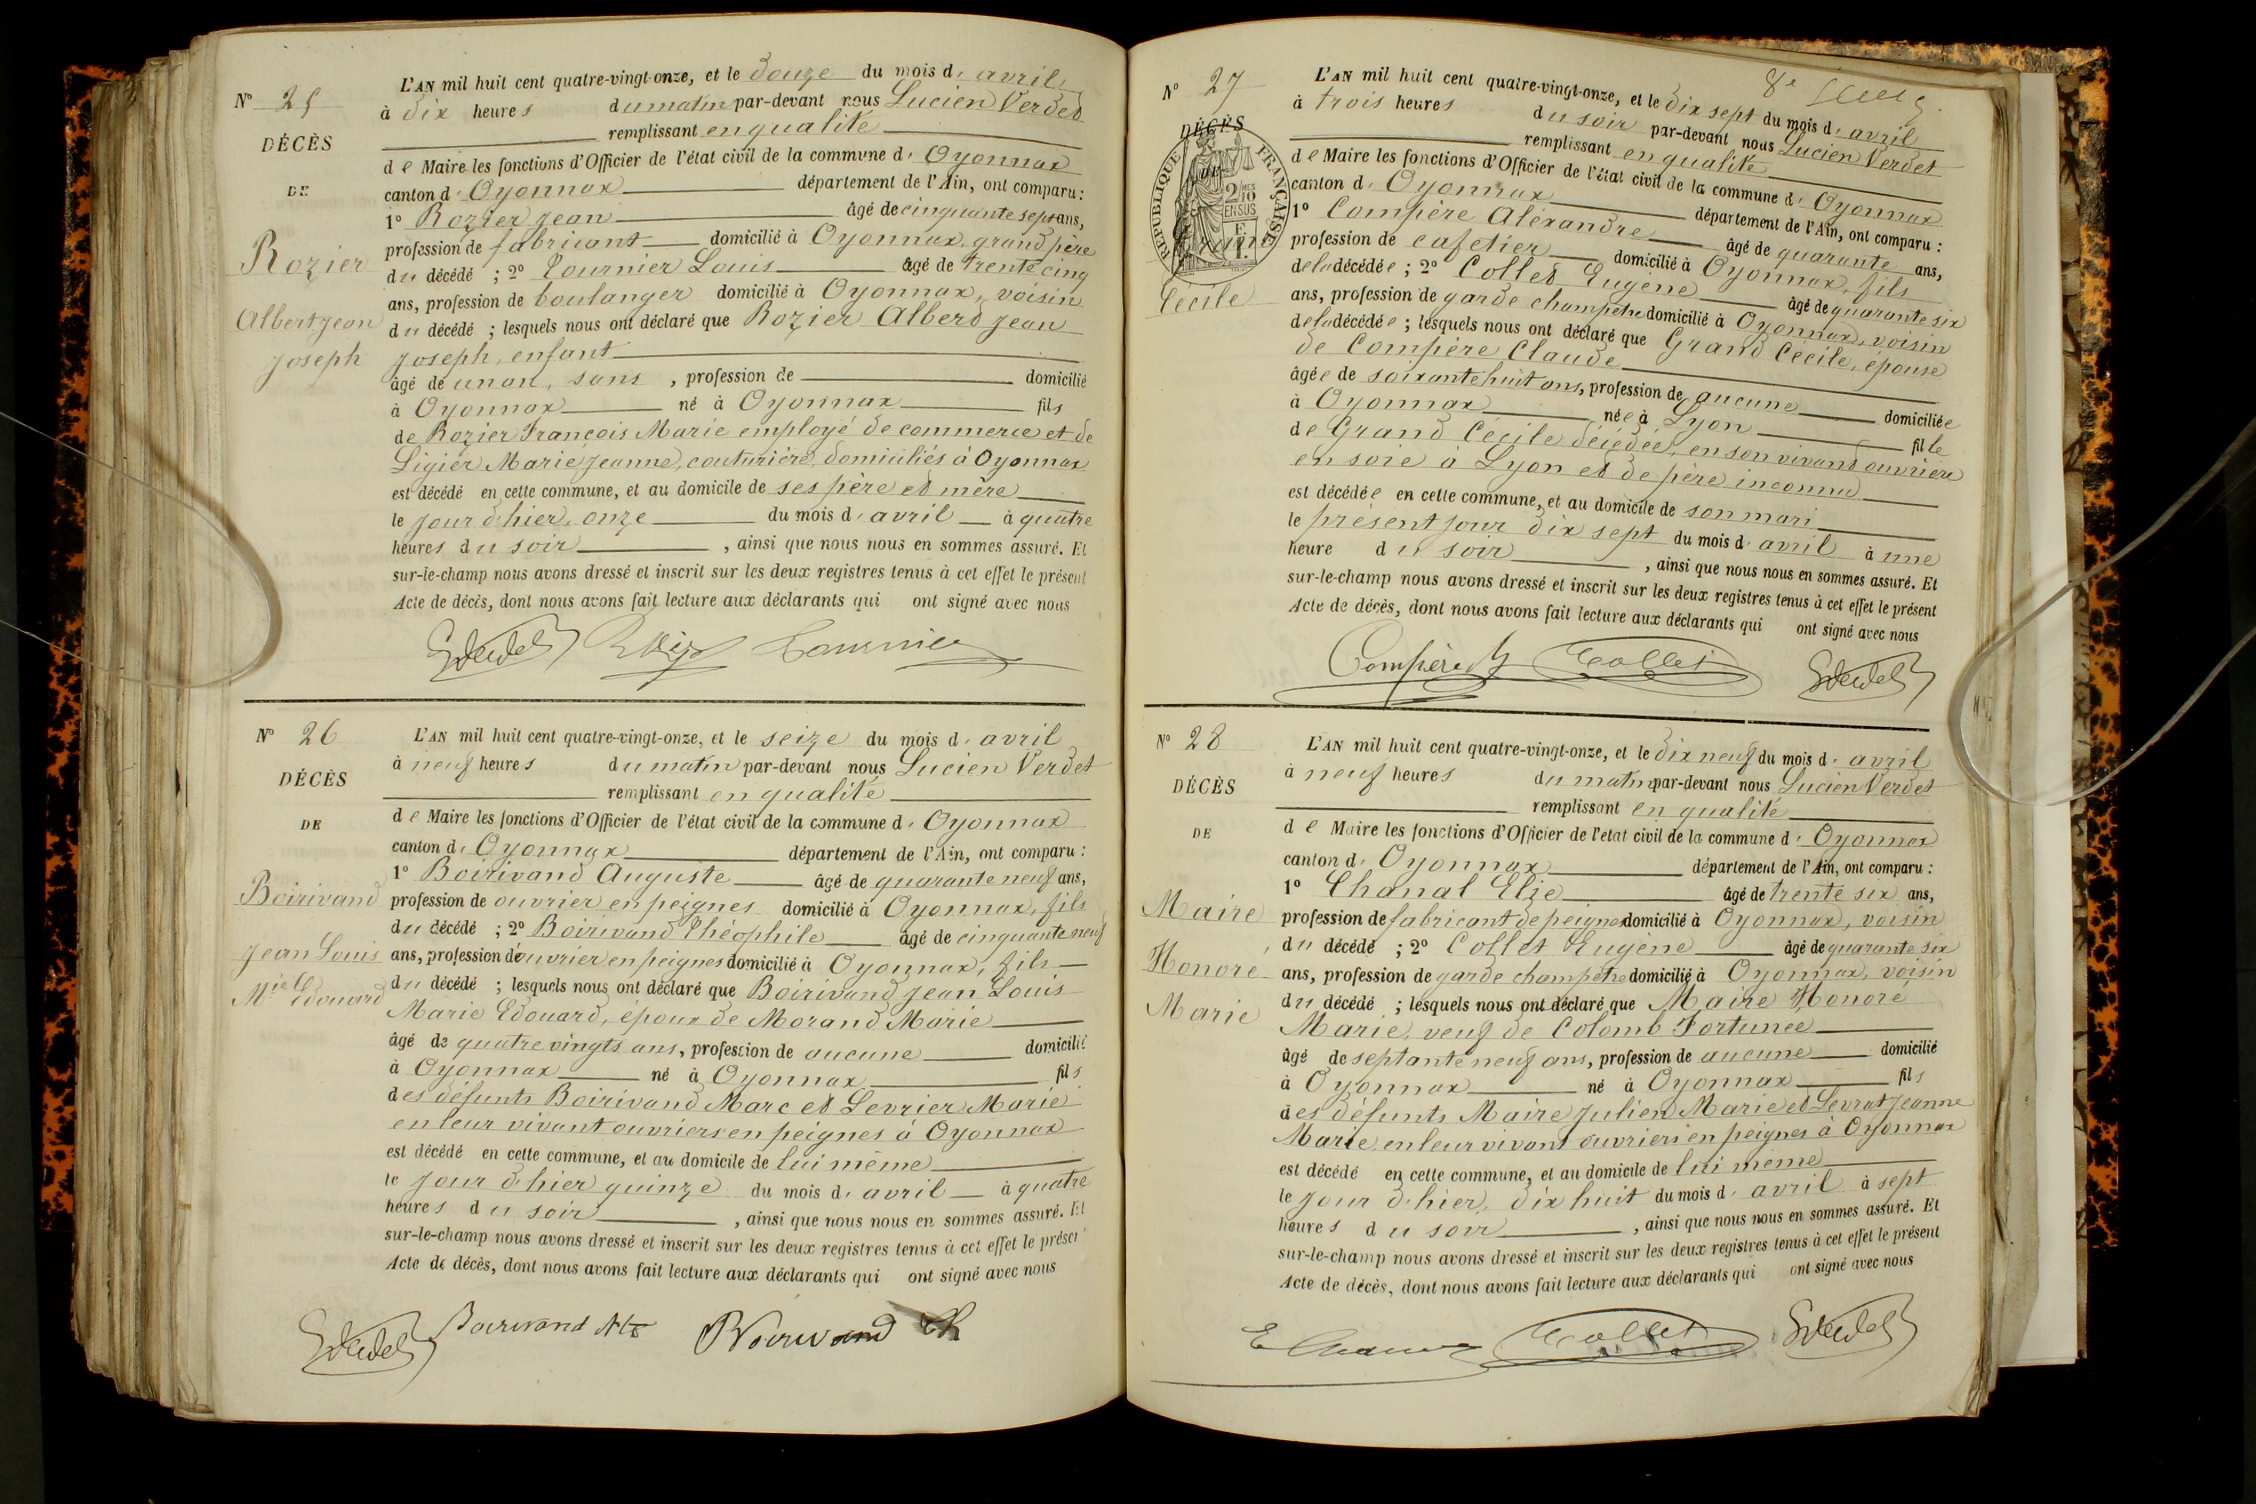 N° 25
DÉCÈS
DE
Rozier
Albert Jean
Joseph
L'AN mil huit cent quatre-vingt-onze, et le douze du mois d' avril
à dix heures du matin par-devant nous Lucien Verdet
remplissant en qualité
de Maire les fonctions d'Officier de l'état civil de la commune d' Oyonnax
canton d' Oyonnax département de l'Ain, ont comparu :
1° Rozier Jean âgé de cinquante sept ans,
profession de fabricant domicilié à Oyonnax, grand père
du décédé ; 2° Tournier Louis âgé de trente cinq
ans, profession de boulanger domicilié à Oyonnax, voisin
du décédé ; lesquels nous ont déclaré que Rozier Albert Jean
Joseph, enfant
âgé de un an, sans , profession de domicilié
à Oyonnax né à Oyonnax fils
de Rozier François Marie employé de commerce et de
Ligier Marie Jeanne, couturière, domiciliés à Oyonnax
est décédé en cette commune, et au domicile de ses père et mère
le jour d'hier, onze du mois d' avril à quatre
heures du soir , ainsi que nous nous en sommes assuré. Et
sur-le-champ nous avons dressé et inscrit sur les deux registres tenus à cet effet le présent
Acte de décès, dont nous avons fait lecture aux déclarants qui ont signé avec nous
Tournier
N° 26
DÉCÈS
DE
Boirivand
Jean Louis
Mie Edouard
L'AN mil huit cent quatre-vingt-onze, et le seize du mois d' avril
à neuf heures du matin par-devant nous Lucien Verdet
remplissant en qualité
de Maire les fonctions d'Officier de l'état civil de la commune d' Oyonnax
canton d' Oyonnax département de l'Ain, ont comparu :
1° Boirivand Auguste âgé de quarante neuf ans,
profession de ouvrier en peignes domicilié à Oyonnax, fils
du décédé ; 2° Boirivand Théophile âgé de cinquante neuf
ans, profession d'ouvrier en peignes domicilié à Oyonnax, fils
du décédé ; lesquels nous ont déclaré que Boirivand Jean Louis
Marie Edouard, époux de Morand Marie
âgé de quatre vingts ans, profession de aucune domicilié
à Oyonnax né à Oyonnax fils
des défunts Boirivand Marc et Levrier Marie
en leur vivant ouvriers en peignes à Oyonnax
est décédé en cette commune, et au domicile de lui même
le jour d'hier quinze du mois d' avril à quatre
heures du soir , ainsi que nous nous en sommes assuré. Et
sur-le-champ nous avons dressé et inscrit sur les deux registres tenus à cet effet le présent
Acte de décès, dont nous avons fait lecture aux déclarants qui ont signé avec nous
Boirivand Boirivand Th
8e
N° 27
DÉCÈS
DE
RÉPUBLIQUE FRANÇAISE
2/10 EN SUS
Grand
Cécile
L'AN mil huit cent quatre-vingt-onze, et le dix sept du mois d' avril
à trois heures du soir par-devant nous Lucien Verdet
remplissant en qualité
de Maire les fonctions d'Officier de l'état civil de la commune d' Oyonnax
canton d' Oyonnax département de l'Ain, ont comparu :
1° Compère Aléxandre âgé de quarante ans,
profession de cafetier domicilié à Oyonnax, fils
de la décédée ; 2° Collet Eugène âgé de quarante six
ans, profession de garde champetre domicilié à Oyonnax, voisin
de la décédée ; lesquels nous ont déclaré que Grand Cécile, épouse
de Compère Claude
âgée de soixante huit ans, profession de aucune domiciliée
à Oyonnax née à Lyon fille
de Grand Cécile décédée, en son vivant ouvrière
en soie à Lyon et de père inconnu
est décédée en cette commune, et au domicile de son mari
le présent jour dix sept du mois d' avril à une
heure du soir , ainsi que nous nous en sommes assuré. Et
sur-le-champ nous avons dressé et inscrit sur les deux registres tenus à cet effet le présent
Acte de décès, dont nous avons fait lecture aux déclarants qui ont signé avec nous
Compère Collet
N° 28
DÉCÈS
DE
Maire
Honoré
Marie
L'AN mil huit cent quatre-vingt-onze, et le dix neuf du mois d' avril
à neuf heures du matin par-devant nous Lucien Verdet
remplissant en qualité
de Maire les fonctions d'Officier de l'état civil de la commune d' Oyonnax
canton d' Oyonnax département de l'Ain, ont comparu :
1° Chanal Elie âgé de trente six ans,
profession de fabricant de peignes domicilié à Oyonnax, voisin
du décédé ; 2° Collet Eugène âgé de quarante six
ans, profession de garde champetre domicilié à Oyonnax, voisin
du décédé ; lesquels nous ont déclaré que Maire Honoré
Marie, veuf de Colomb Fortunée
âgé de septante neuf ans, profession de aucune domicilié
à Oyonnax né à Oyonnax fils
des défunts Maire Julien Marie et Levrat Jeanne
Marie, en leur vivant ouvriers en peignes à Oyonnax
est décédé en cette commune, et au domicile de lui même
le jour d'hier, dix huit du mois d' avril à sept
heures du soir , ainsi que nous nous en sommes assuré. Et
sur-le-champ nous avons dressé et inscrit sur les deux registres tenus à cet effet le présent
Acte de décès, dont nous avons fait lecture aux déclarants qui ont signé avec nous
Collet